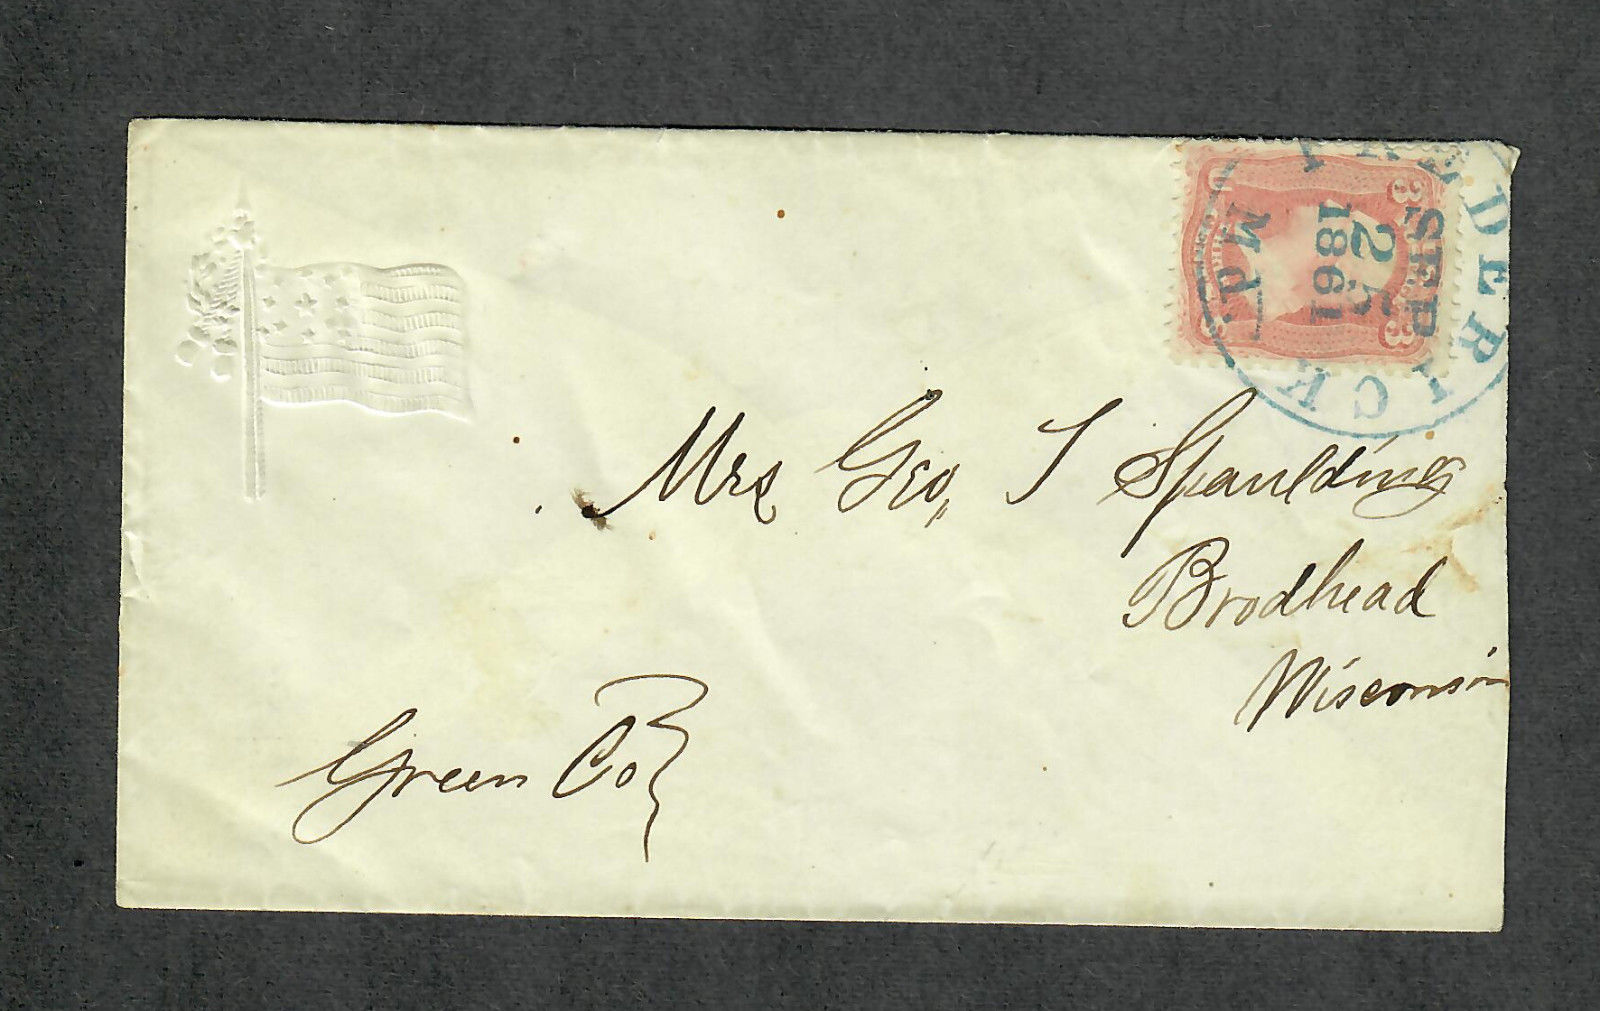 FREDERICK
Md.
SEP
25
1861
3 3
Mrs Geo,, T Spaulding
Brodhead
Wisconsin
Green Co